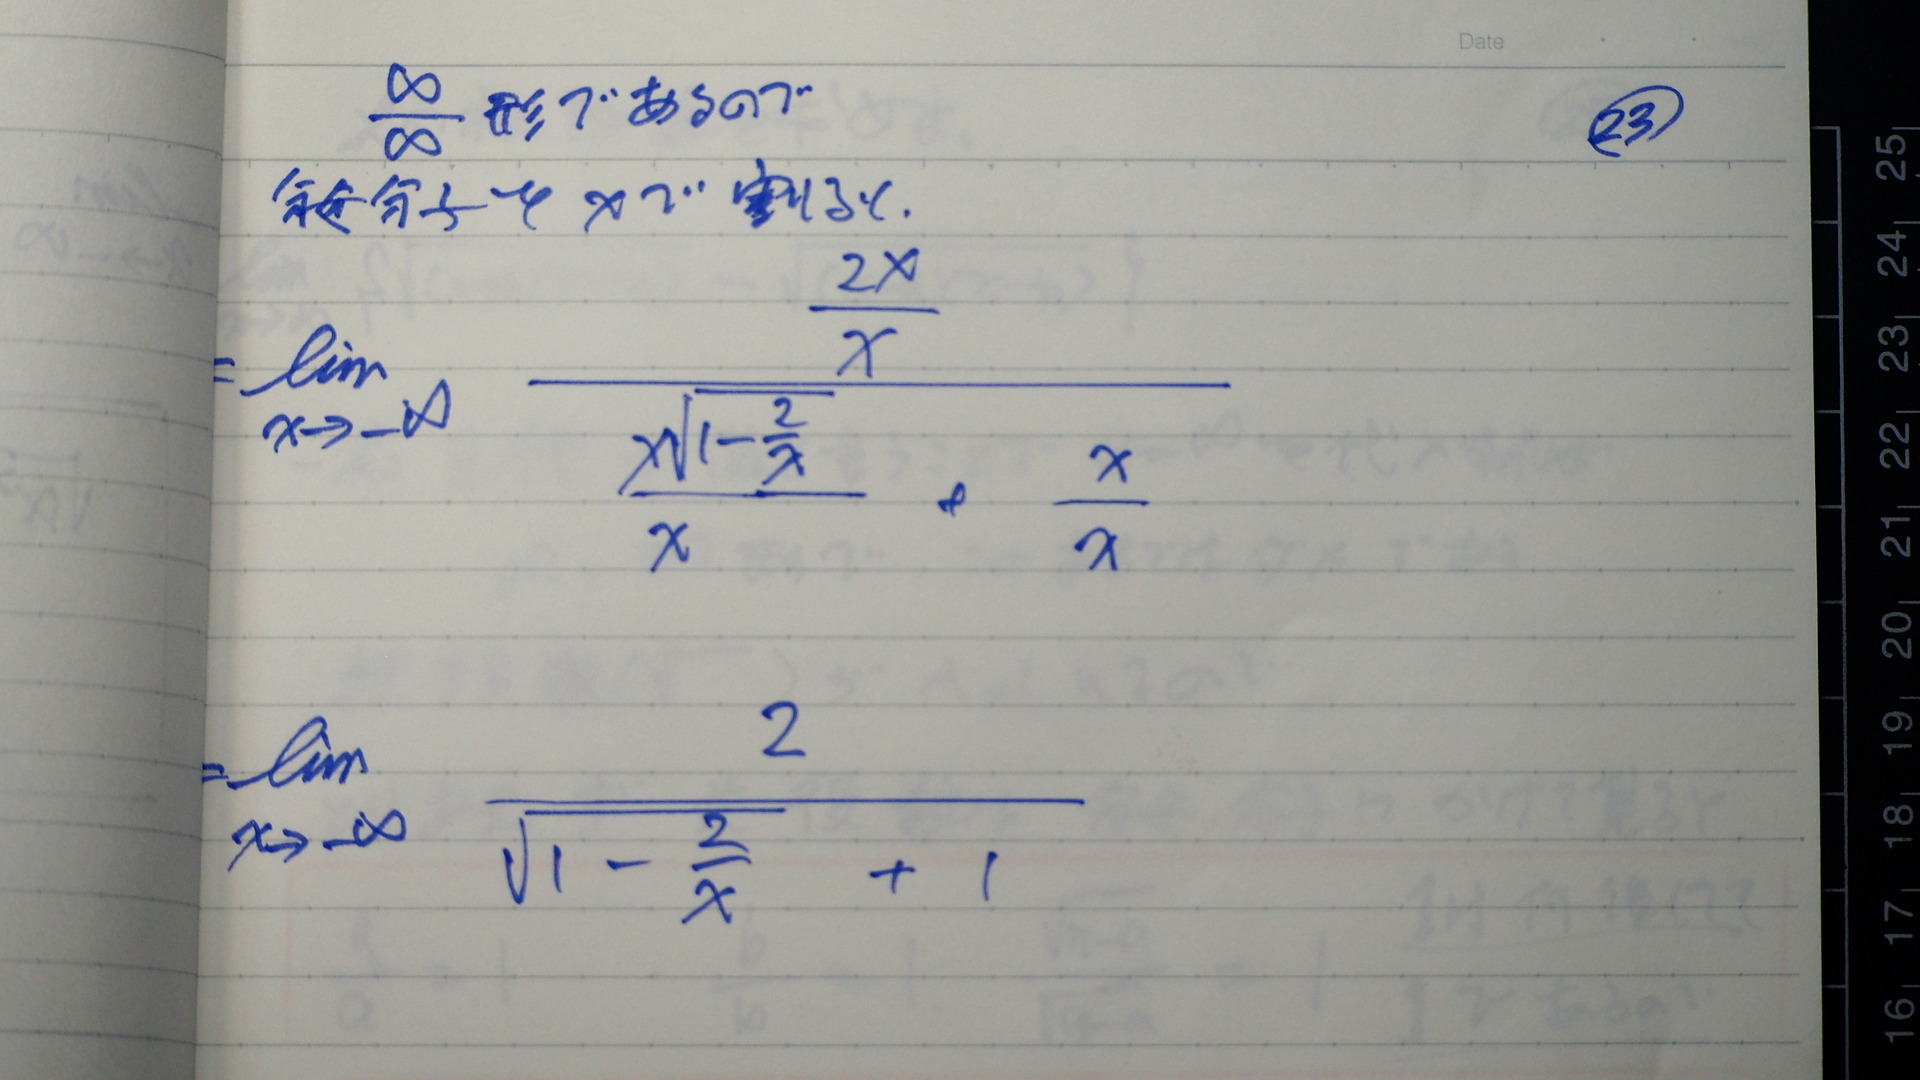 Date
∞/∞ 形であるので
(23)
分母分子を xで 割ると.
= lim x→-∞ (2x/x) / (x√(1-2/x)/x + x/x)
= lim x→-∞ 2 / (√(1 - 2/x) + 1)
25
24
23
22
21
20
19
18
17
16